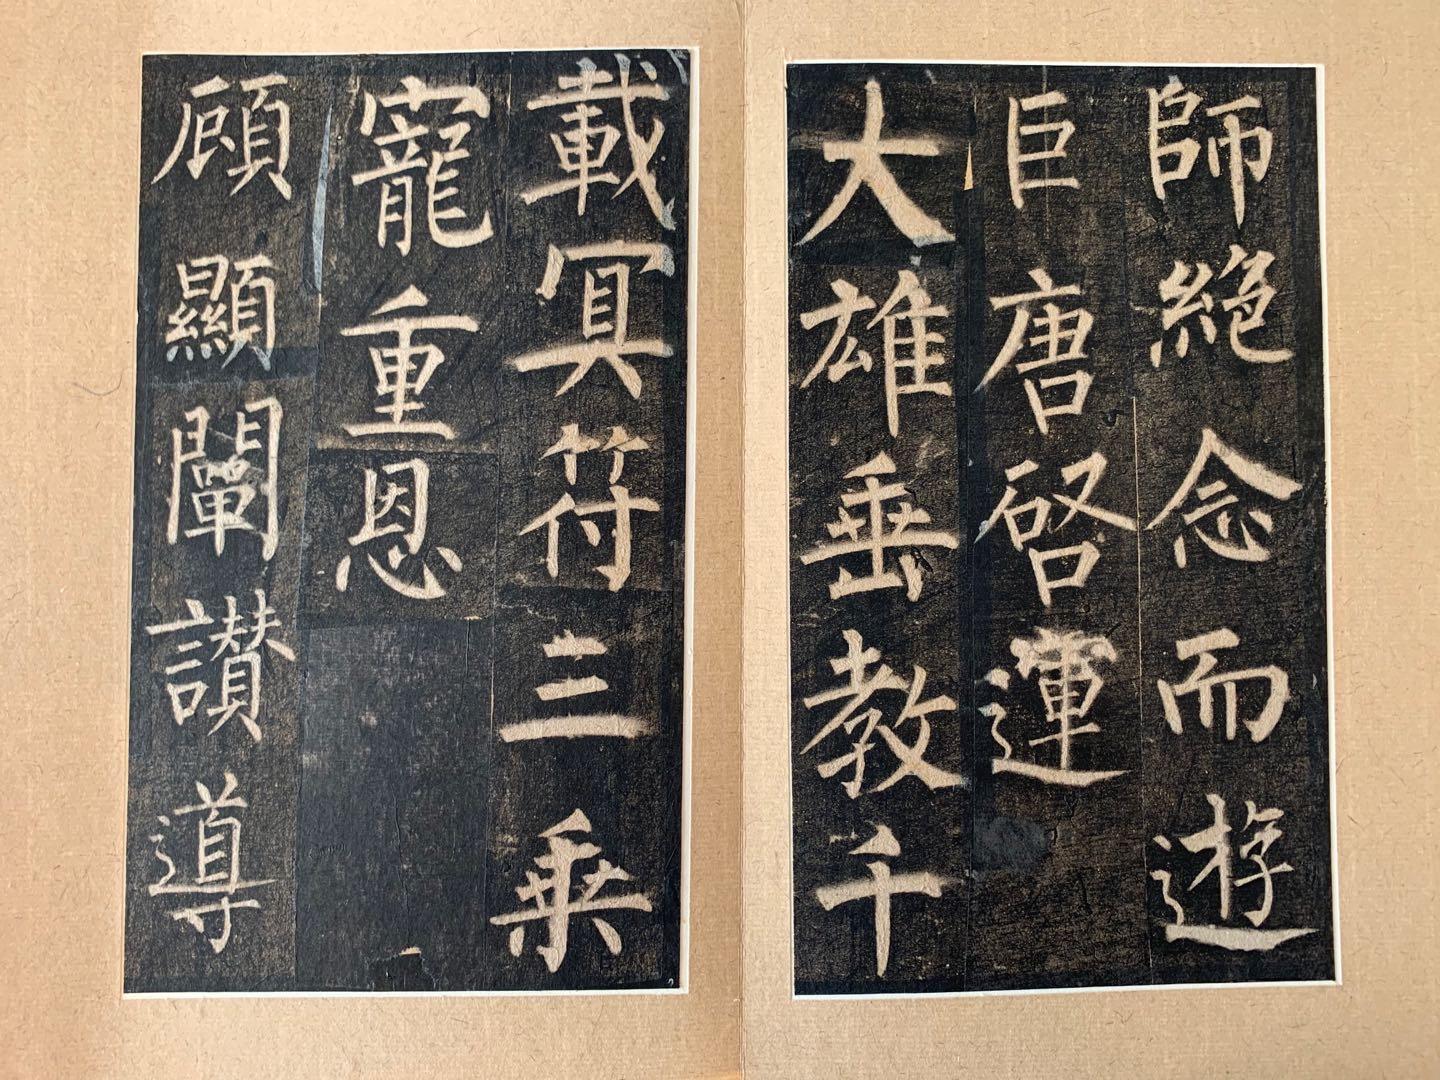 師絕念而遊
巨唐啓運
大雄垂教千
載冥符三乘
寵重恩
顧顯闡讃導